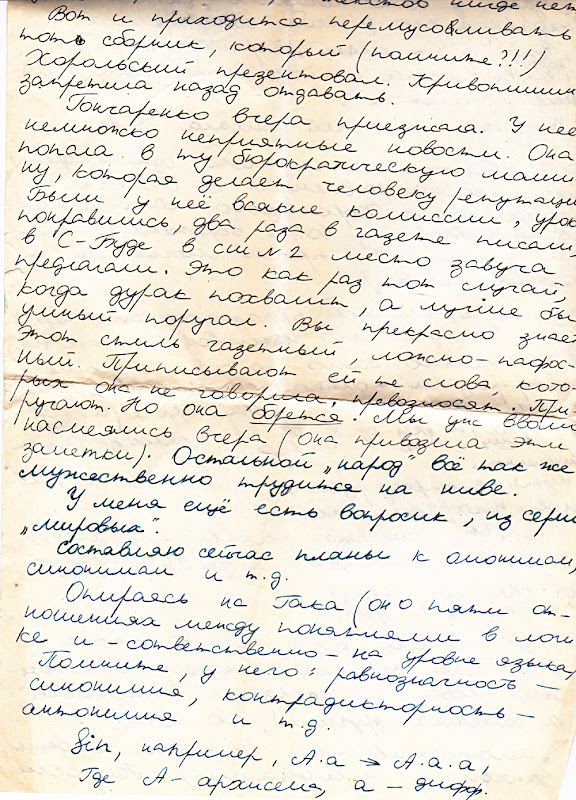 текстов нигде нет
Вот и приходится перемусоливать
тот сборник, который (помните?!!)
Хорольский презентовал. Кривопишин
запретила назад отдавать.
Гончаренко вчера приезжала. У неё
немножко неприятные новости. Она
попала в ту бюрократическую маши-
ну, которая делает человеку репутаци
Были у неё всякие комиссии, урок
понравились, два раза в газете писали,
в С-Буде в сш N2 место завуча
предлагали. Это как раз тот случай,
когда дурак похвалит, а лучше бы
умный поругал. Вы прекрасно знает
этот стиль газетный, ложно-пафос-
ный. Приписывают ей те слова, кото-
рых она не говорила, превозносят. При
ругают. Но она борется. Мы уже вволю
насмеялись вчера (она привозила эти
заметки). Остальной „народ" всё так же
мужественно трудится на ниве.
У меня ещё есть вопросик, из серии
„мировых".
Составляю сейчас планы к омонимам,
синонимам и т.д.
Опираясь на Гака (он о пяти от-
ношениях между понятиями в логи
ке и - сответственно - на уровне языка,
Помните, у него: равнозначность -
синонимия, контрадикторность -
антонимия и т.д.
Sin, например, А.а → А.а.а,
Где А - архисема, а - дифф.